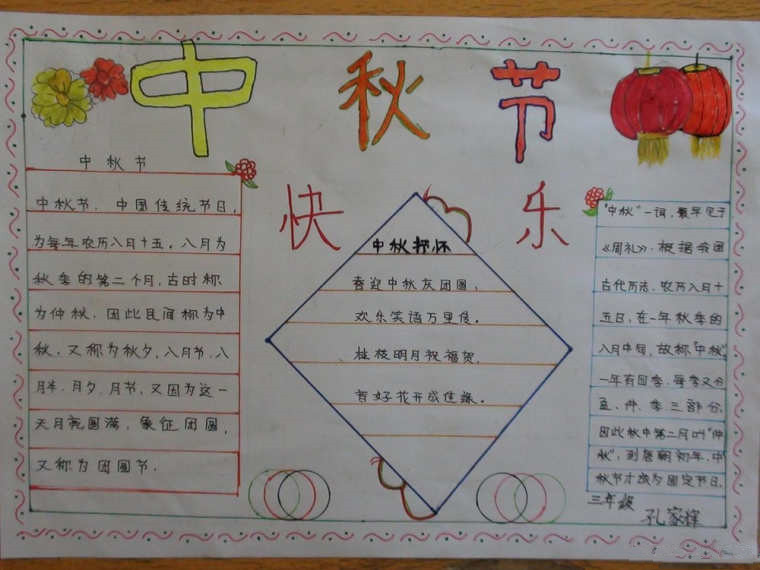 中秋节
快乐
中秋节
中秋节，中国传统节日，
为每年农历八月十五，八月为
秋季的第二个月，古时称
为仲秋，因此民间称为中
秋，又称为秋夕，八月节，八
月半，月夕，月节，又因为这一
天月亮圆满，象征团圆，
又称为团圆节．
中秋抒怀
喜迎中秋友团圆，
欢乐笑语万里传。
桂枝明月祝福贺，
花开成
"中秋"一词，最早见于
《周礼》．根据我国
古代历法，农历八月十
五日，在一年秋季的
八月中旬，故称"中秋"，
一年有四季，每季又分
孟．仲．季三部分，
因此秋中第二月叫"仲
秋"，到唐朝初年，中
秋节才成为固定节日．
三年级
孔家